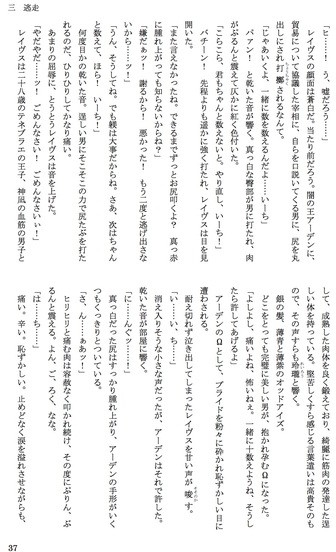 三　逃走
「ヒ……！　う、嘘だろう……」
レイヴスの顔面は蒼白だ。当たり前だろう。闇の王アーデンに、
貿易について協議した宰相に、自らを口説いてくる男に、尻を丸
出しにされ折檻されるなんて。
「じゃあいくよ、一緒に数を数えるんだよ……いーち」
パァン！　と乾いた音が響く。真っ白な臀部が男に打たれ、肉
がぶるんと震えて仄かに紅く色付いた。
「こらこら、君もちゃんと数えないと。やり直し、いーち！」
バチーン！　先程よりも遥かに強く打たれ、レイヴスは目を見
開いた。
「また言えなかったね。できるまでずっとお尻叩くよ？　真っ赤
に腫れ上がっても知らないからね？」
「嫌だぁッ！　謝るから！　悪かった！　もう二度と逃げ出さな
いから……ッ！」
「うん、そうしてね。でも躾は大事だからね。さあ、次はちゃん
と数えて、ほら！　いーち！」
何度目かの乾いた音。逞しい男にそこそこの力で尻たぶを打た
れるのだ、ひりひりしてかなり痛い。
あまりの屈辱に、とうとうレイヴスは音を上げた。
「やだやだ……ッ！　ごめんなさい！　ごめんなさいぃ！」
レイヴスは二十八歳のテネブラエの王子、神凪の血筋の男子と
して、成熟した肉体を良く鍛えており、綺麗に筋肉の発達した逞
しい体を持っている。堅苦しくすら感じる言葉遣いは高貴そのも
ので、その声すらも玲瓏と響く。
銀の髪、薄青と薄紫のオッドアイズ。
どこをとっても完璧に美しい男が、抱かれ孕むΩになった。
「よしよし、痛いよね、怖いねぇ。一緒に十数えようね、そうし
たら許してあげるよ」
アーデンのΩとして、プライドを粉々に砕かれ恥ずかしい目に
遭わされる。
耐え切れず泣き出してしまったレイヴスを甘い声が唆す。
「い……い、ち……」
消え入りそうな小さな声だったが、アーデンはそれで許した。
乾いた音が部屋に響く。
真っ白だった尻はすっかり腫れ上がり、アーデンの手形がいく
つもくっきりとついている。
「に……んぐッ……！」
「さ、ん……ぁあッ！」
ヒリヒリと痛む肉は容赦なく叩かれ続け、その度にぷりん、ぷ
りんと震える。よん、ご、ろく、なな。
「は……ち……！」
痛い。辛い。恥ずかしい。止めどなく涙を溢れさせながらも、
37